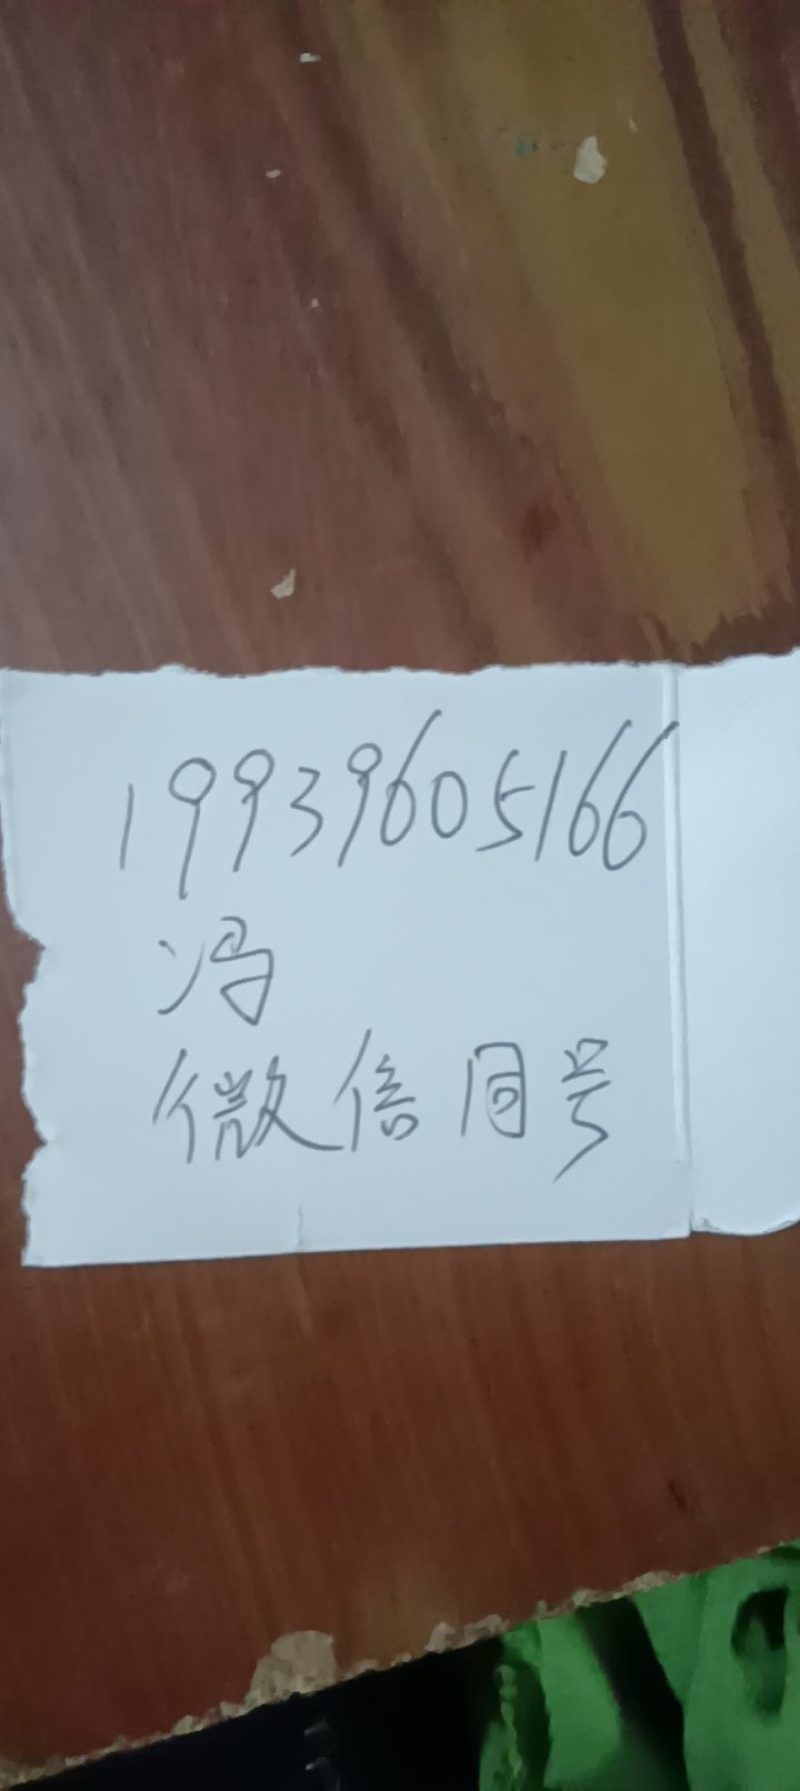 19939605166
冯
微信同号